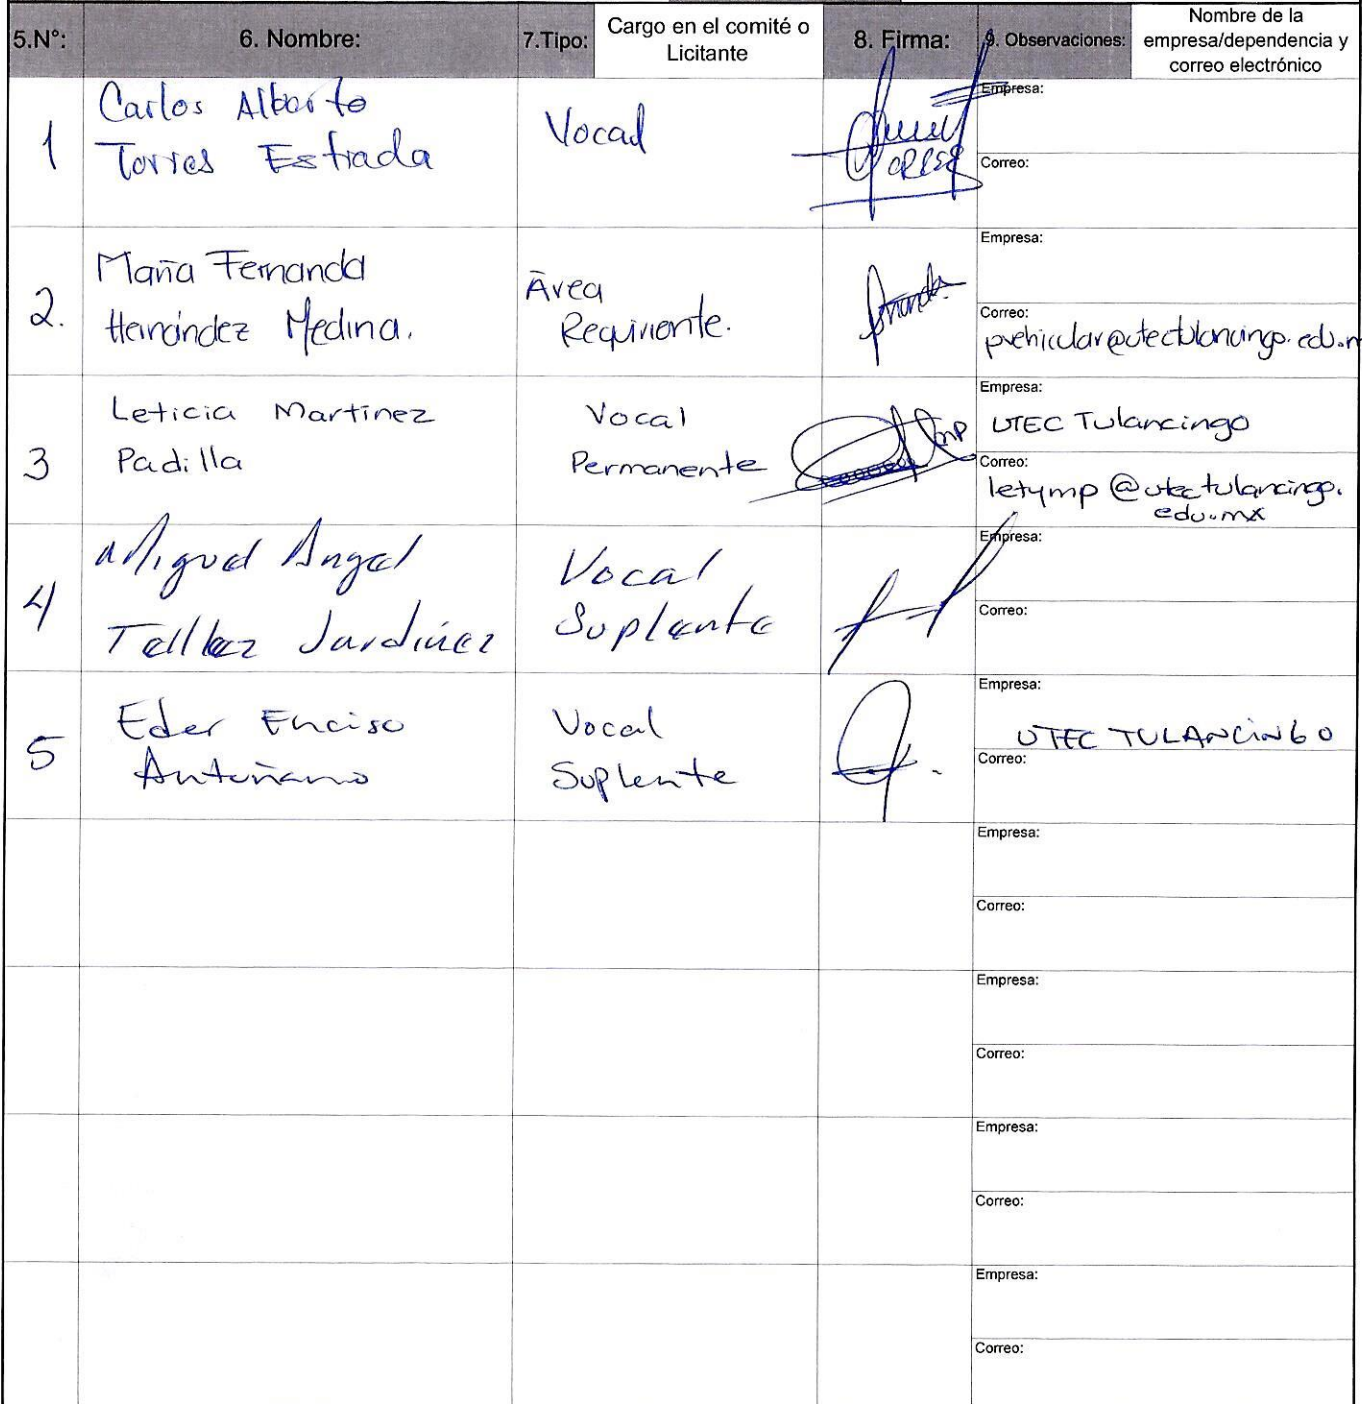 5.N°:
6. Nombre:
7.Tipo:
Cargo en el comité o
Licitante
8. Firma:
9. Observaciones:
Nombre de la
empresa/dependencia y
correo electrónico
1
Carlos Alberto
Torres Estrada
Vocal
Empresa:
Correo:
2.
María Fernanda
Hernández Medina.
Área
Requirente.
Empresa:
Correo:
pvehicular@utectulancingo.edu.m
3
Leticia Martínez
Padilla
Vocal
Permanente
Empresa:
UTEC Tulancingo
Correo:
letymp@utectulancingo.
edu.mx
4
Miguel Angel
Tellez Jardinez
Vocal
Suplente
Empresa:
Correo:
5
Eder Enciso
Antuñano
Vocal
Suplente
Empresa:
UTEC TULANCINGO
Correo:
Empresa:
Correo:
Empresa:
Correo:
Empresa:
Correo:
Empresa:
Correo: